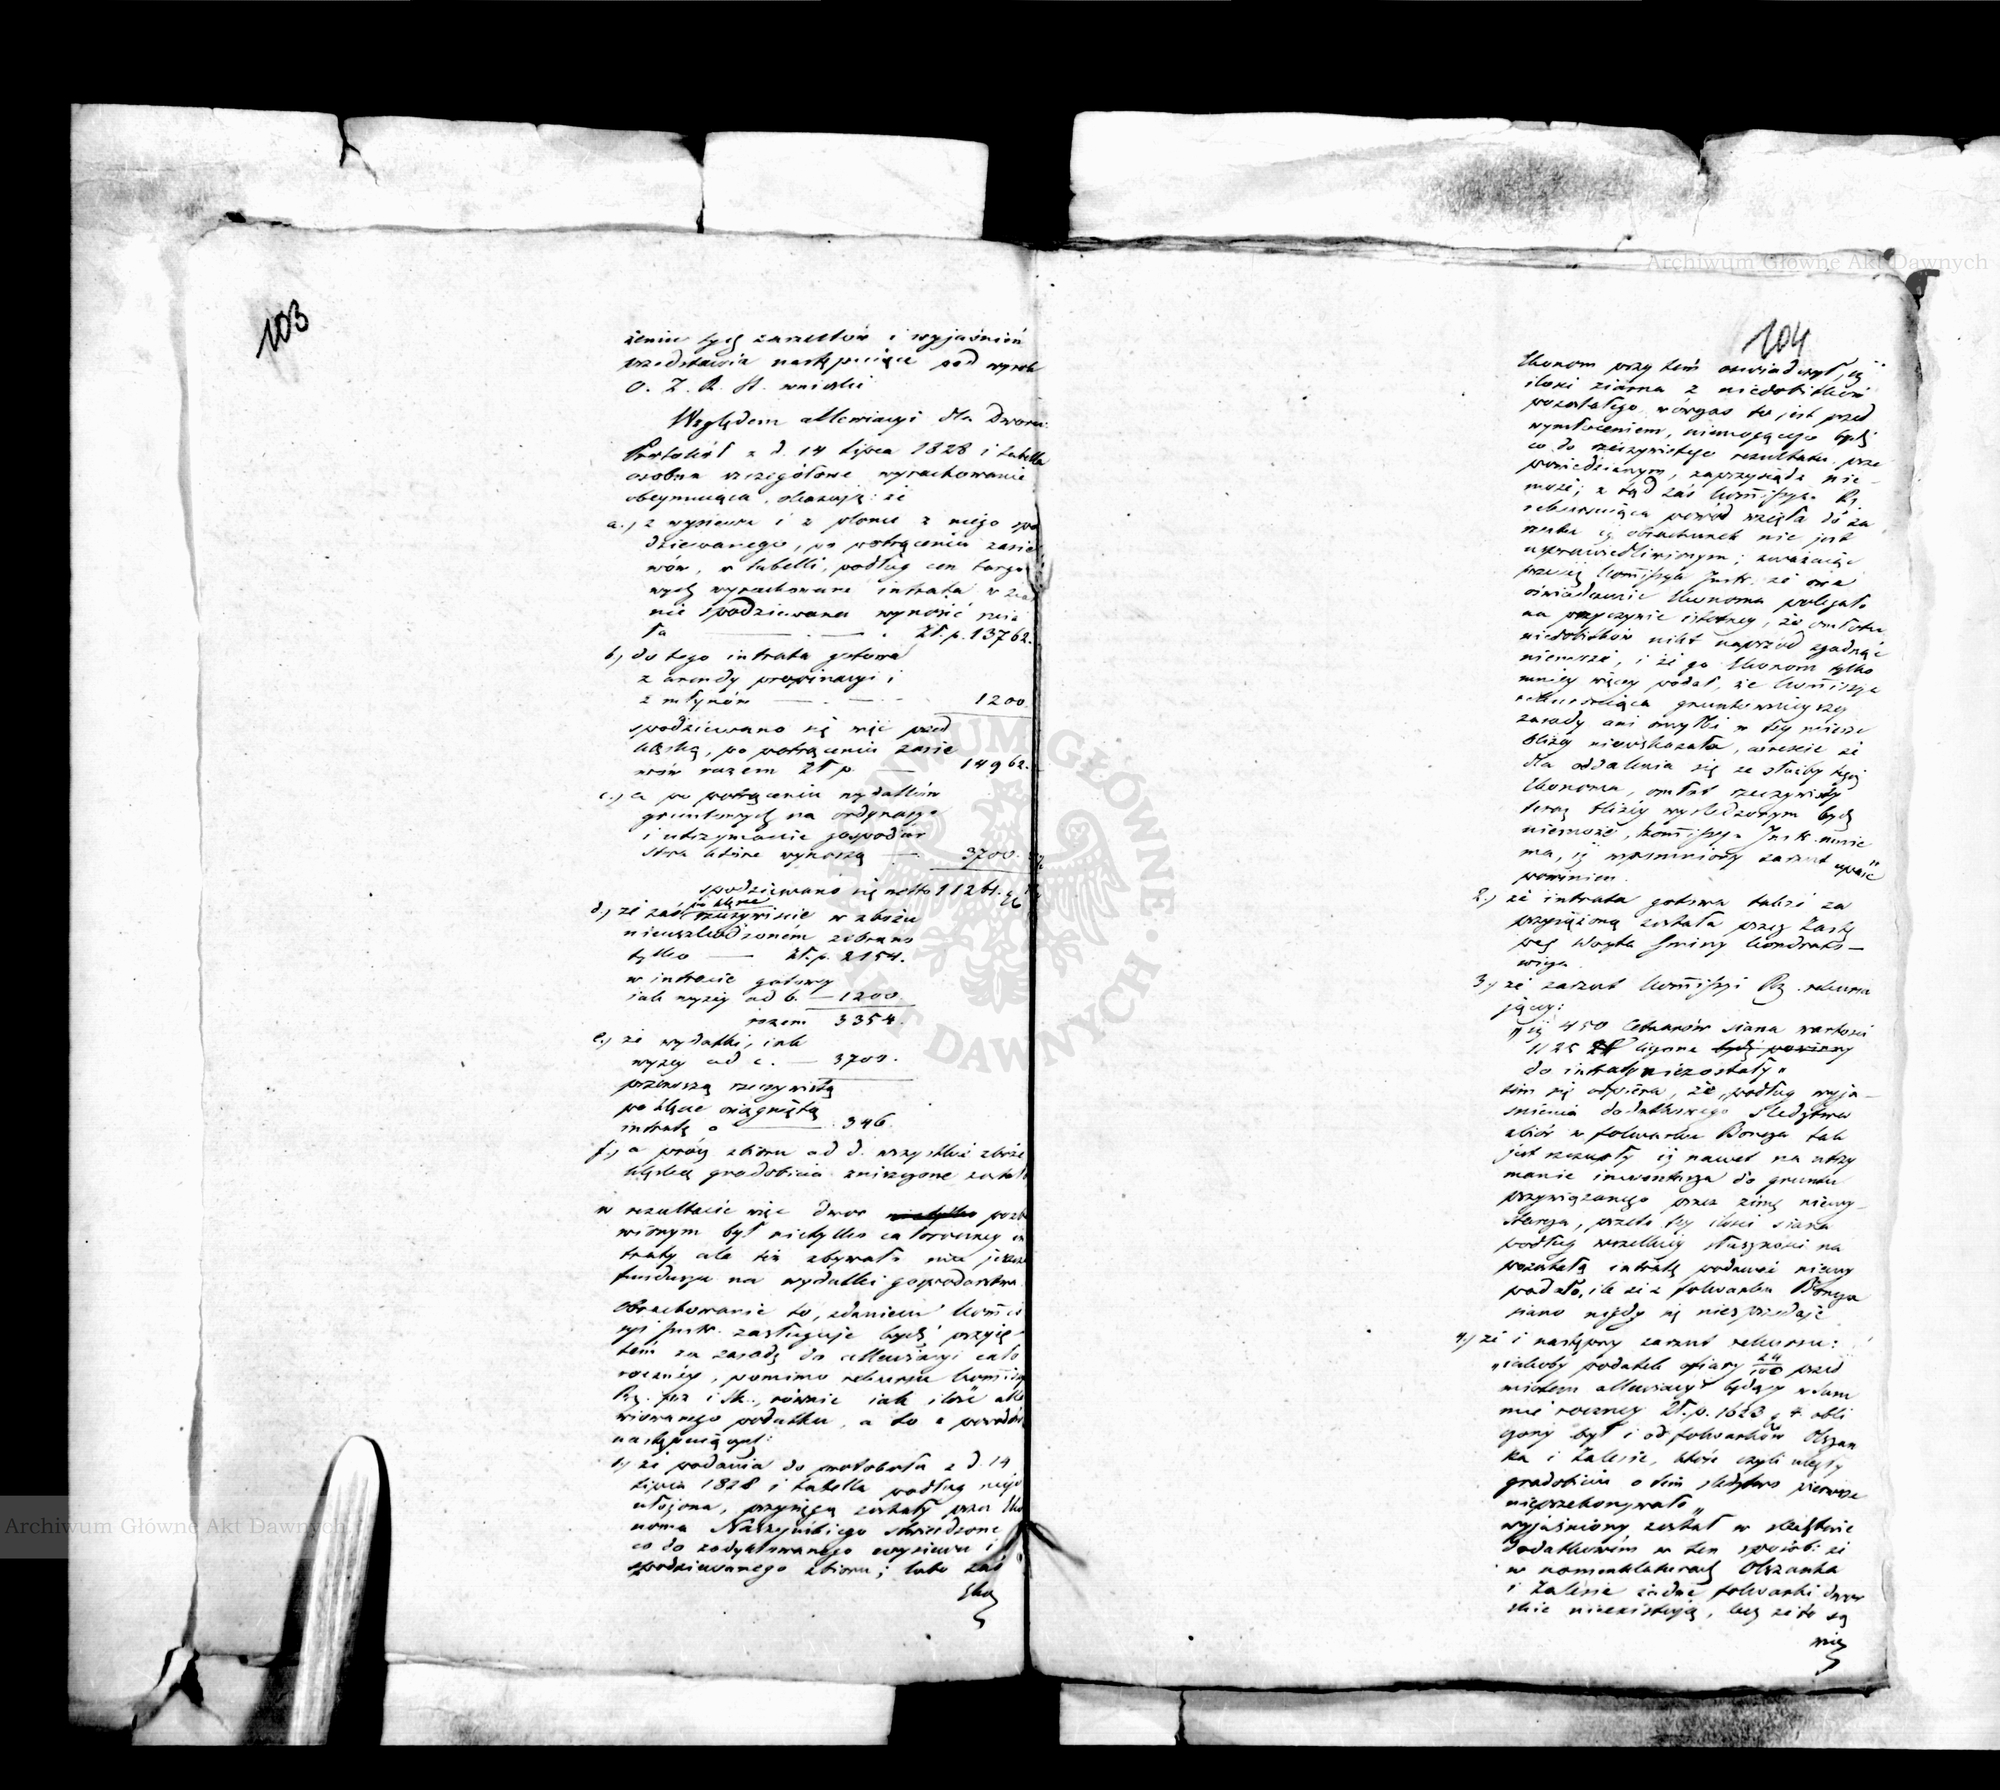 103
żeniu tych zarzutów i wyjaśnień
przedstawia następujące pod wyrok
O. Z. R. St. wnioski
Względem allewiacyi dla Dworu.
Protokół z d. 14 Lipca 1828 i tabella
osobna szczegółowe wyrachowanie
obeymująca, okazują: że
a.) z wysiewu i z plonu z niego spo
dziewanego, po potrąceniu zasie
wów, w tabelli, podług cen targo
wych wyrachowana intrata w ziar
nie spodziewana wynosić mia
ła — Zł.p. 13762.
b.) do tego intrata gotowa
z arendy propinacyi i
z młynów — 1200.
spodziewano się więc przed
klęską, po potrąceniu zasie
wów razem Zł p. — 14962.
c.) a po potrąceniu wydatków
gruntowych na ordynaryę
i utrzymanie gospodar
stwa które wynoszą — 3700.
spodziewano się netto 11261.
po klęsce
d.) że zaś rzeczywiście w zbożu
nieuszkodzoném zebrano
tylko — Zł.p. 2154.
w intracie gotowey
jak wyżey ad b. — 1200.
razem 3354.
e.) że wydatki, jak
wyżey ad c. — 3700.
przenoszą rzeczywistą
po klęsce osiągniętą
intratę o — 346.
f.) a prócz zbioru ad d. wszystkie zboże
klęską gradobicia zniszczone zostało
w rezultacie więc dwor nietylko pozba
wionym był nietylko całoroczney in
traty ale też zbywało mu jeszcze
funduszu na wydatki gospodarstwa.
Obrachowanie to, zdaniem Kommis
syi Instr. zasługuje bydź przyię
tém za zasadę do allewiacyi cało
roczney, pomimo rekursu Kommissyi
Rz. Prz. i Sk., równie jak ilość alle
wiowanego podatku, a to z powodów
następujących:
1.) że podania do protokułu z d. 14
Lipca 1828 i tabella podług niego
ułożona, przysięgą zostały przez Eko
noma Naszyńskiego stwierdzone
co do zadyktowanego wysiewu i
spodziewanego zbioru; lubo zaś
Eko
104
Ekonom przy tem oświadczył, iż
ilości ziarna z niedobitków
pozostałego, wówczas to jest przed
wymłóceniem, niemogącego bydź
co do rzeczywistego rezultatu prze
powiedzianym, zaprzysiądz nie
może; z tąd zaś Kommissya Rz.
rekursująca powód wzięła do za
rzutu iż obrachunek nie jest
usprawiedliwionym; zważając
przecież Kommissya Instr. że owe
oświadczenie Ekonoma polegało
na przyczynie istotney, że omłotu
niedobitków nikt naprzód zgadnąć
niemoże, i że go Ekonom tylko
mniey więcey podał, że Kommissya
rekursująca gruntownieyszey
zasady ani omyłki w tey mierze
bliżey niewskazała, wreszcie że
dla oddalenia się ze służby tegoż
Ekonoma, omłot rzeczywisty
teraz bliżey wyśledzonym bydź
niemoże, Kommissya Instr. mnie
ma, iż wspomniony zarzut upaść
powinien.
2.) że intrata gotowa także za
przysiężoną została przez Zastę
pcę Woyta Gminy Kondrato-
wicza.
3.) że zarzut Kommissyi Rz. rekursu
jącey:
„iż 450 Cetnarów siana wartości
1125 Zł liczone bydź powinny
do intraty niezostały„
tem się odpiera, że, podług wyja-
śnienia dodatkowego śledztwa
zbiór w folwarku Boncza tak
jest szczupły iż nawet na utrzy
manie inwentarza do gruntu
przywiązanego przez zimę niewy-
starcza, przeto tey ilości siana
podług wszelkiey słuszności na
pozostałą intratę podawać niewy
padało, ile że z folwarku Boncza
siano nigdy się niesprzedaje
4.) że i następny zarzut rekursu:
„jakoby podatek ofiary 24/100 przed
miotem allewiacyi będący w sum
mie roczney Zł.p. 1623 g. 4. obli
czony był i od folwarków Olszan
ka i Zalesie, które czyli uległy
gradobiciu o tem śledztwo pierwsze
nieprzekonywało„
wyjaśniony został w śledztwie
dodatkowém w ten sposób: że
w nomenklaturach Olszanka
i Zalesie żadne folwarki dwor
skie nieexistują, lecz że to są
wię
Archiwum Główne Akt Dawnych
Archiwum Główne Akt Dawnych
ARCHIWUM GŁÓWNE AKT DAWNYCH